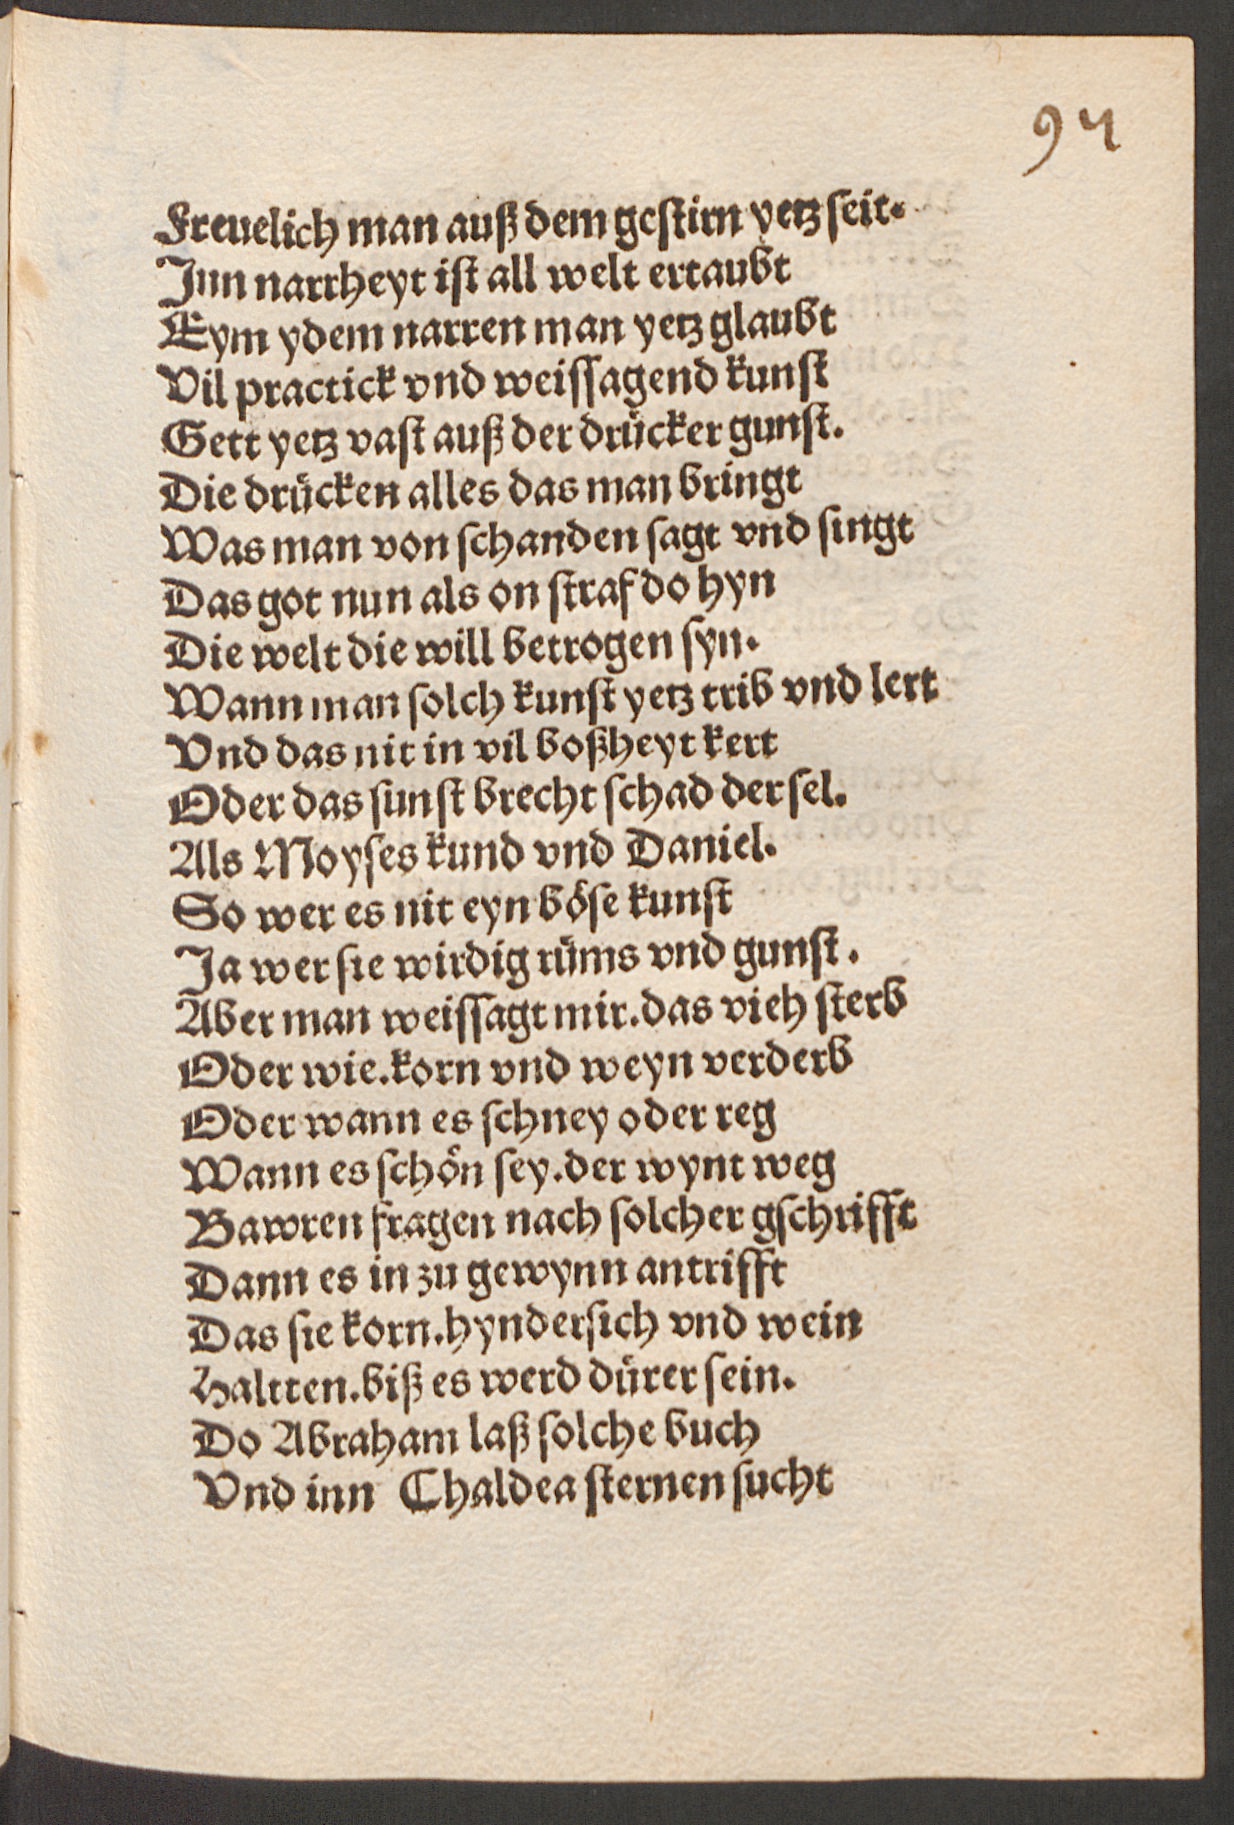 94
Freuelich man auß dem gestirn yetz seit.
Jnn narrheyt ist all welt ertaubt
Eym ydem narren man yetz glaubt
Vil practick vnd weissagend kunst
Gett yetz vast auß der drücker gunst.
Die drücken alles das man bringt
Was man von schanden sagt vnd singt
Das got nun als on straf do hyn
Die welt die will betrogen syn.
Wann man solch kunst yetz trib vnd lert
Vnd das nit in vil boßheyt kert
Oder das sunst brecht schad der sel.
Als Moyses kund vnd Daniel.
So wer es nit eyn böse kunst
Ja wer sie wirdig rüms vnd gunst.
Aber man weissagt mir.das vieh sterb
Oder wie.korn vnd weyn verderb
Oder wann es schney oder reg
Wann es schön sey.der wynt weg
Bawren fragen nach solcher gschrifft
Dann es in zu gewynn antrifft
Das sie korn.hyndersich vnd wein
Haltten.biß es werd dürer sein.
Do Abraham laß solche buch
Vnd inn Chaldea sternen sucht